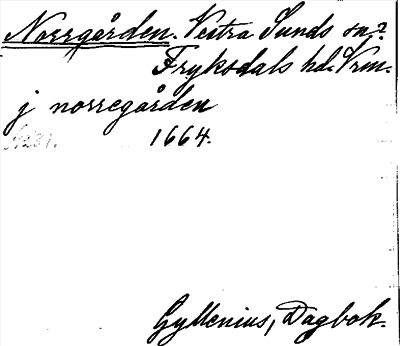 Norrgården. Vestra Sunds sn?
Fryksdals hd. Vrm.
j norregården
1664.
Gyllenius, Dagbok.